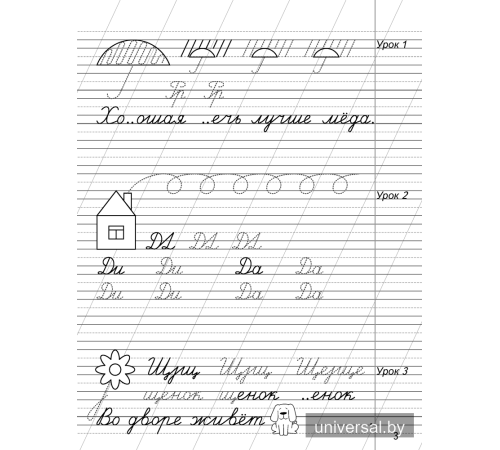 Урок 1
Рр Рр
Хо..ошая ..ечь лучше мёда.
Урок 2
Ди Да
Ди Ди Да Да
Ди Ди Да Да
Щщ Щщ Щещще Урок 3
щенок щенок ..енок
Во дворе живёт
universal.by
3